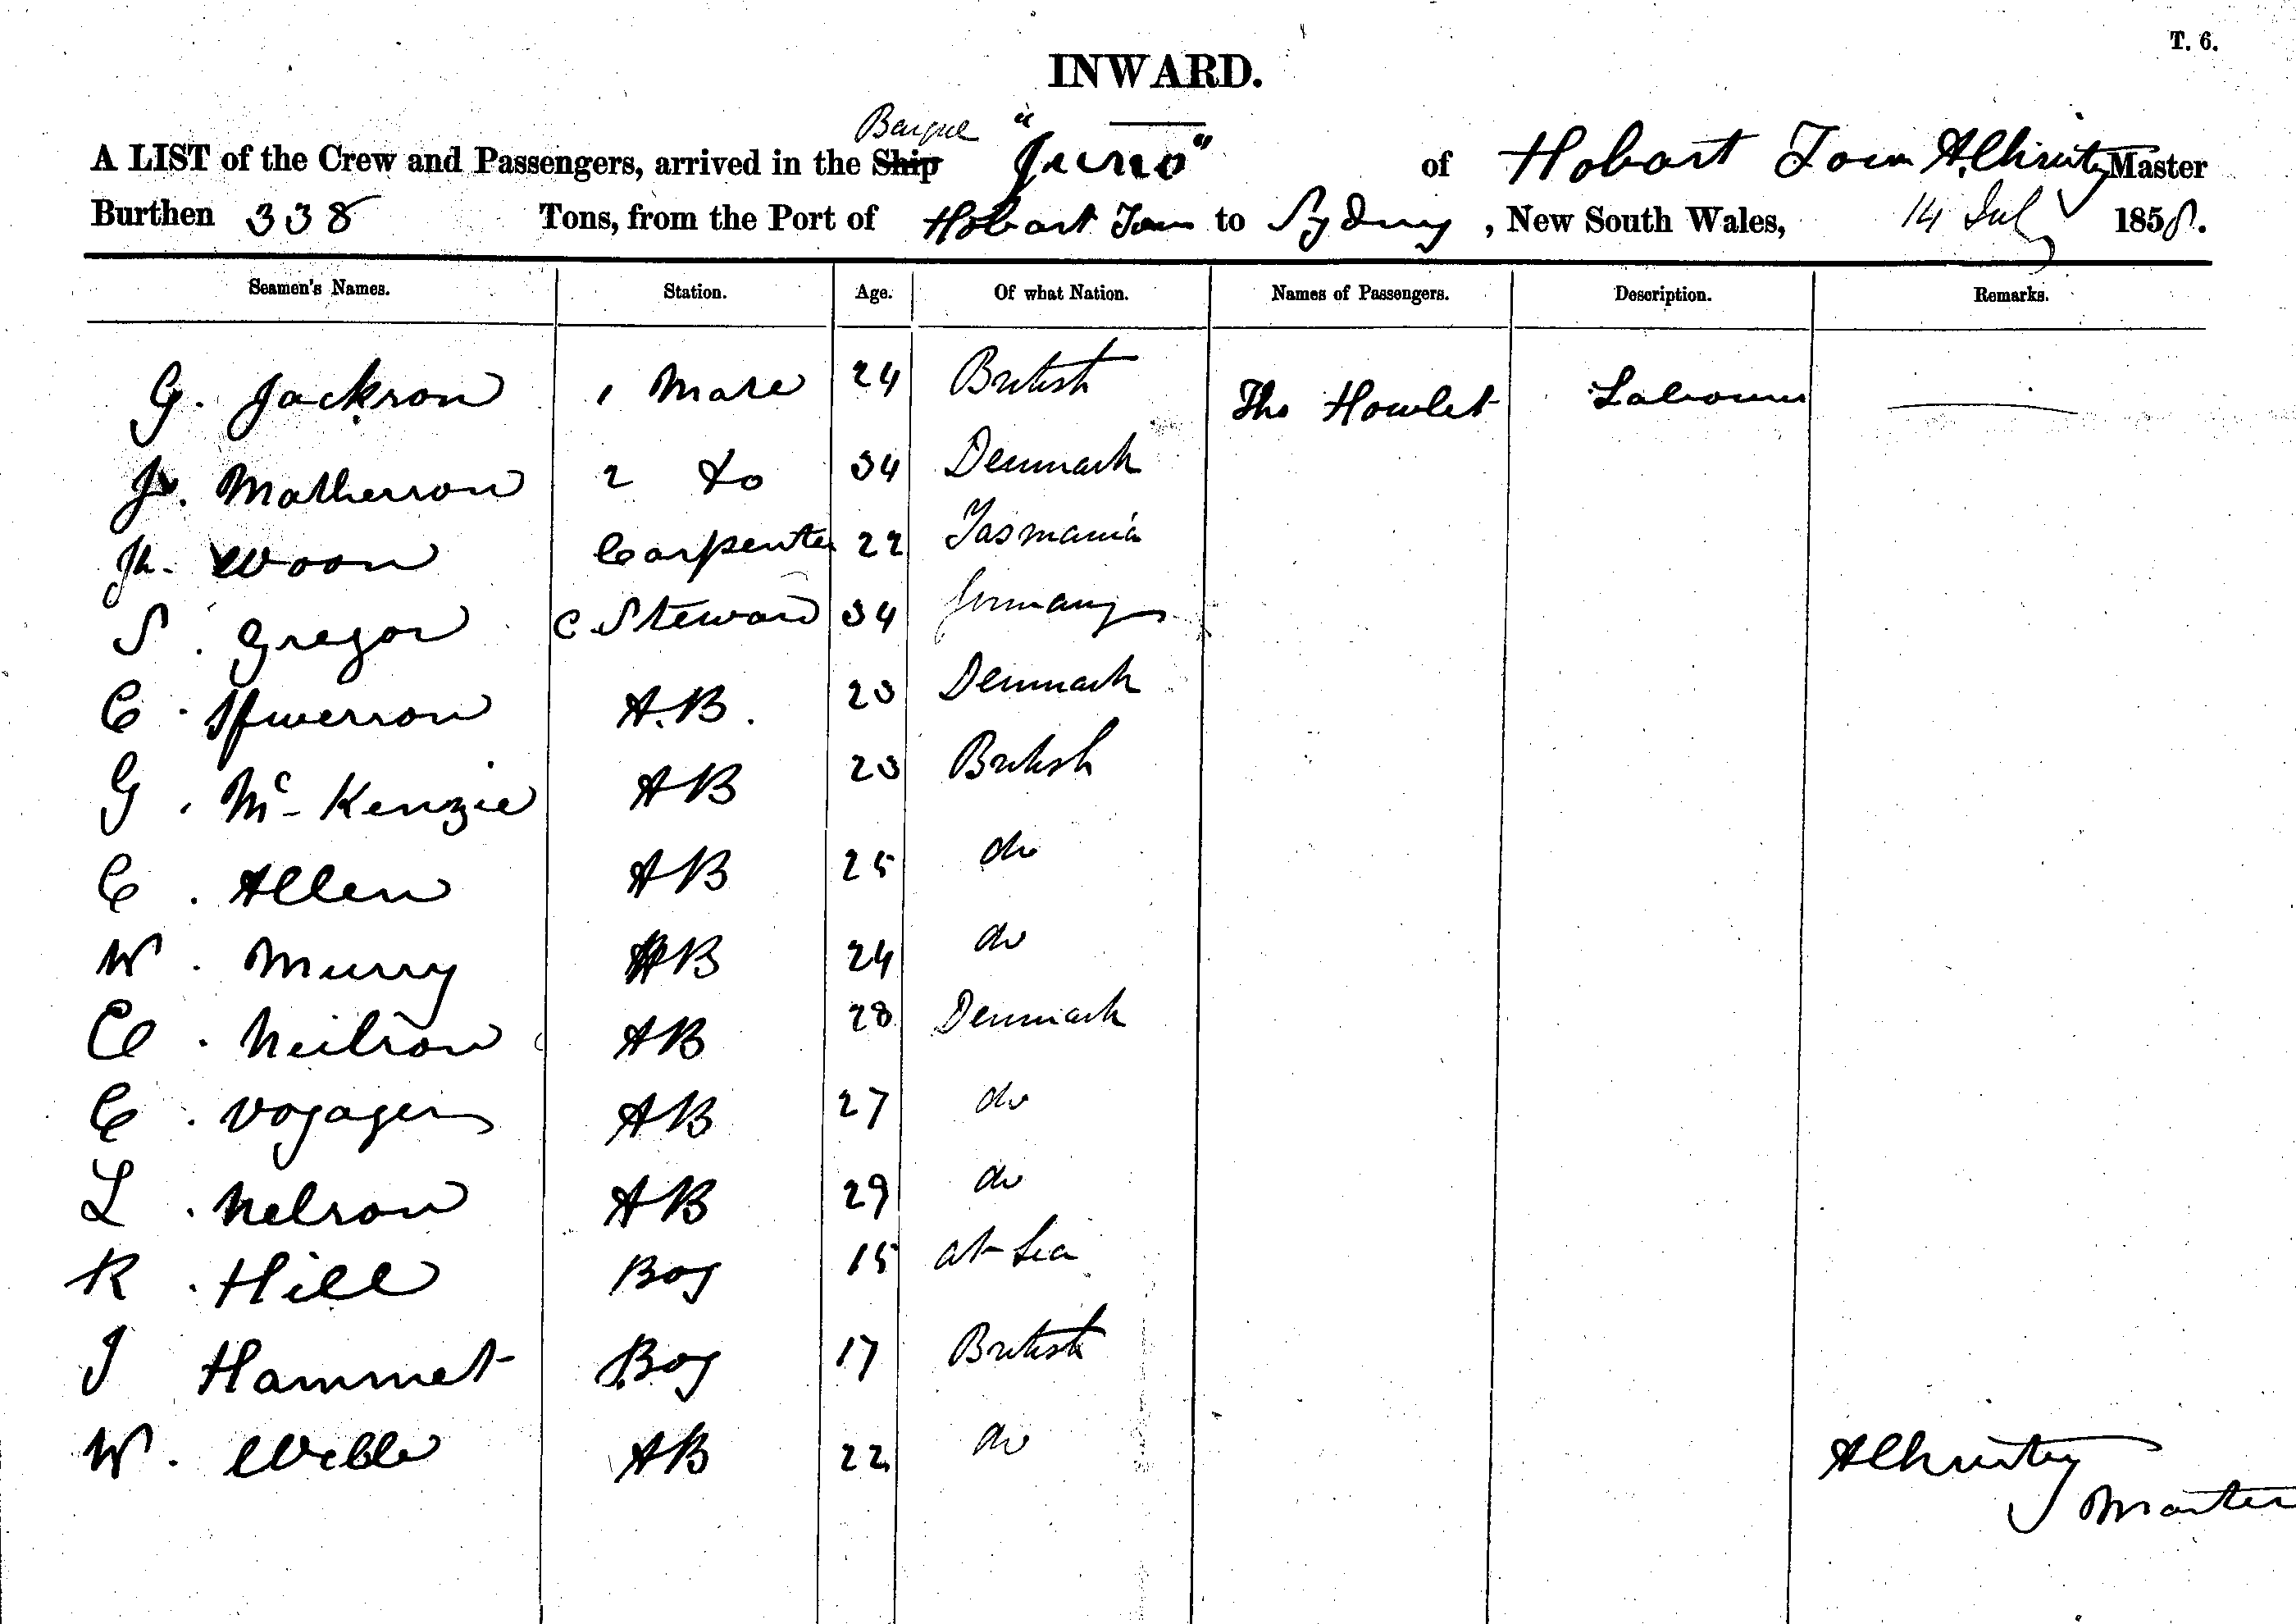 T. 6.
INWARD.
Barque
A LIST of the Crew and Passengers, arrived in the Ship "Juno" of Hobart Town A. Christy Master
Burthen 338 Tons, from the Port of Hobart Town to Sydney, New South Wales, 14 July 1858.
Seamen's Names. Station. Age. Of what Nation. Names of Passengers. Description. Remarks.
G. Jackson 1 Mate 24 British Tho Howlet Labourer
Jo. Matherson 2 do 34 Denmark
Jh. Woon Carpenter 22 Tasmania
S. Gregor C. Steward 34 Germany
C. A.B. 23 Denmark
G. McKenzie AB 23 British
C. Allen AB 25 do
W. Murry AB 24 do
C. Neilson AB 28 Denmark
C. Voyagers AB 27 do
L. Nelson AB 29 do
R. Hill Boy 15 at Sea
J Hammet Boy 17 British
W. Webb AB 22 do
A Christy
Master